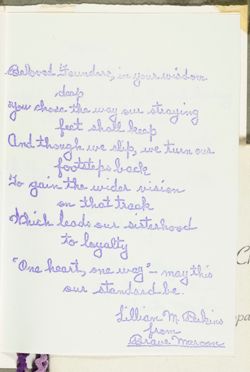 Beloved Founders, in your wisdom
deep
You chose the way our straying
feet shall keep
And though we slip, we turn our
footsteps back
To gain the wider vision
on that track
Which leads our sisterhood
to loyalty
"One heart, one way" - may this
our standard be.
Lillian M. Perkins
from
Brave Maroon